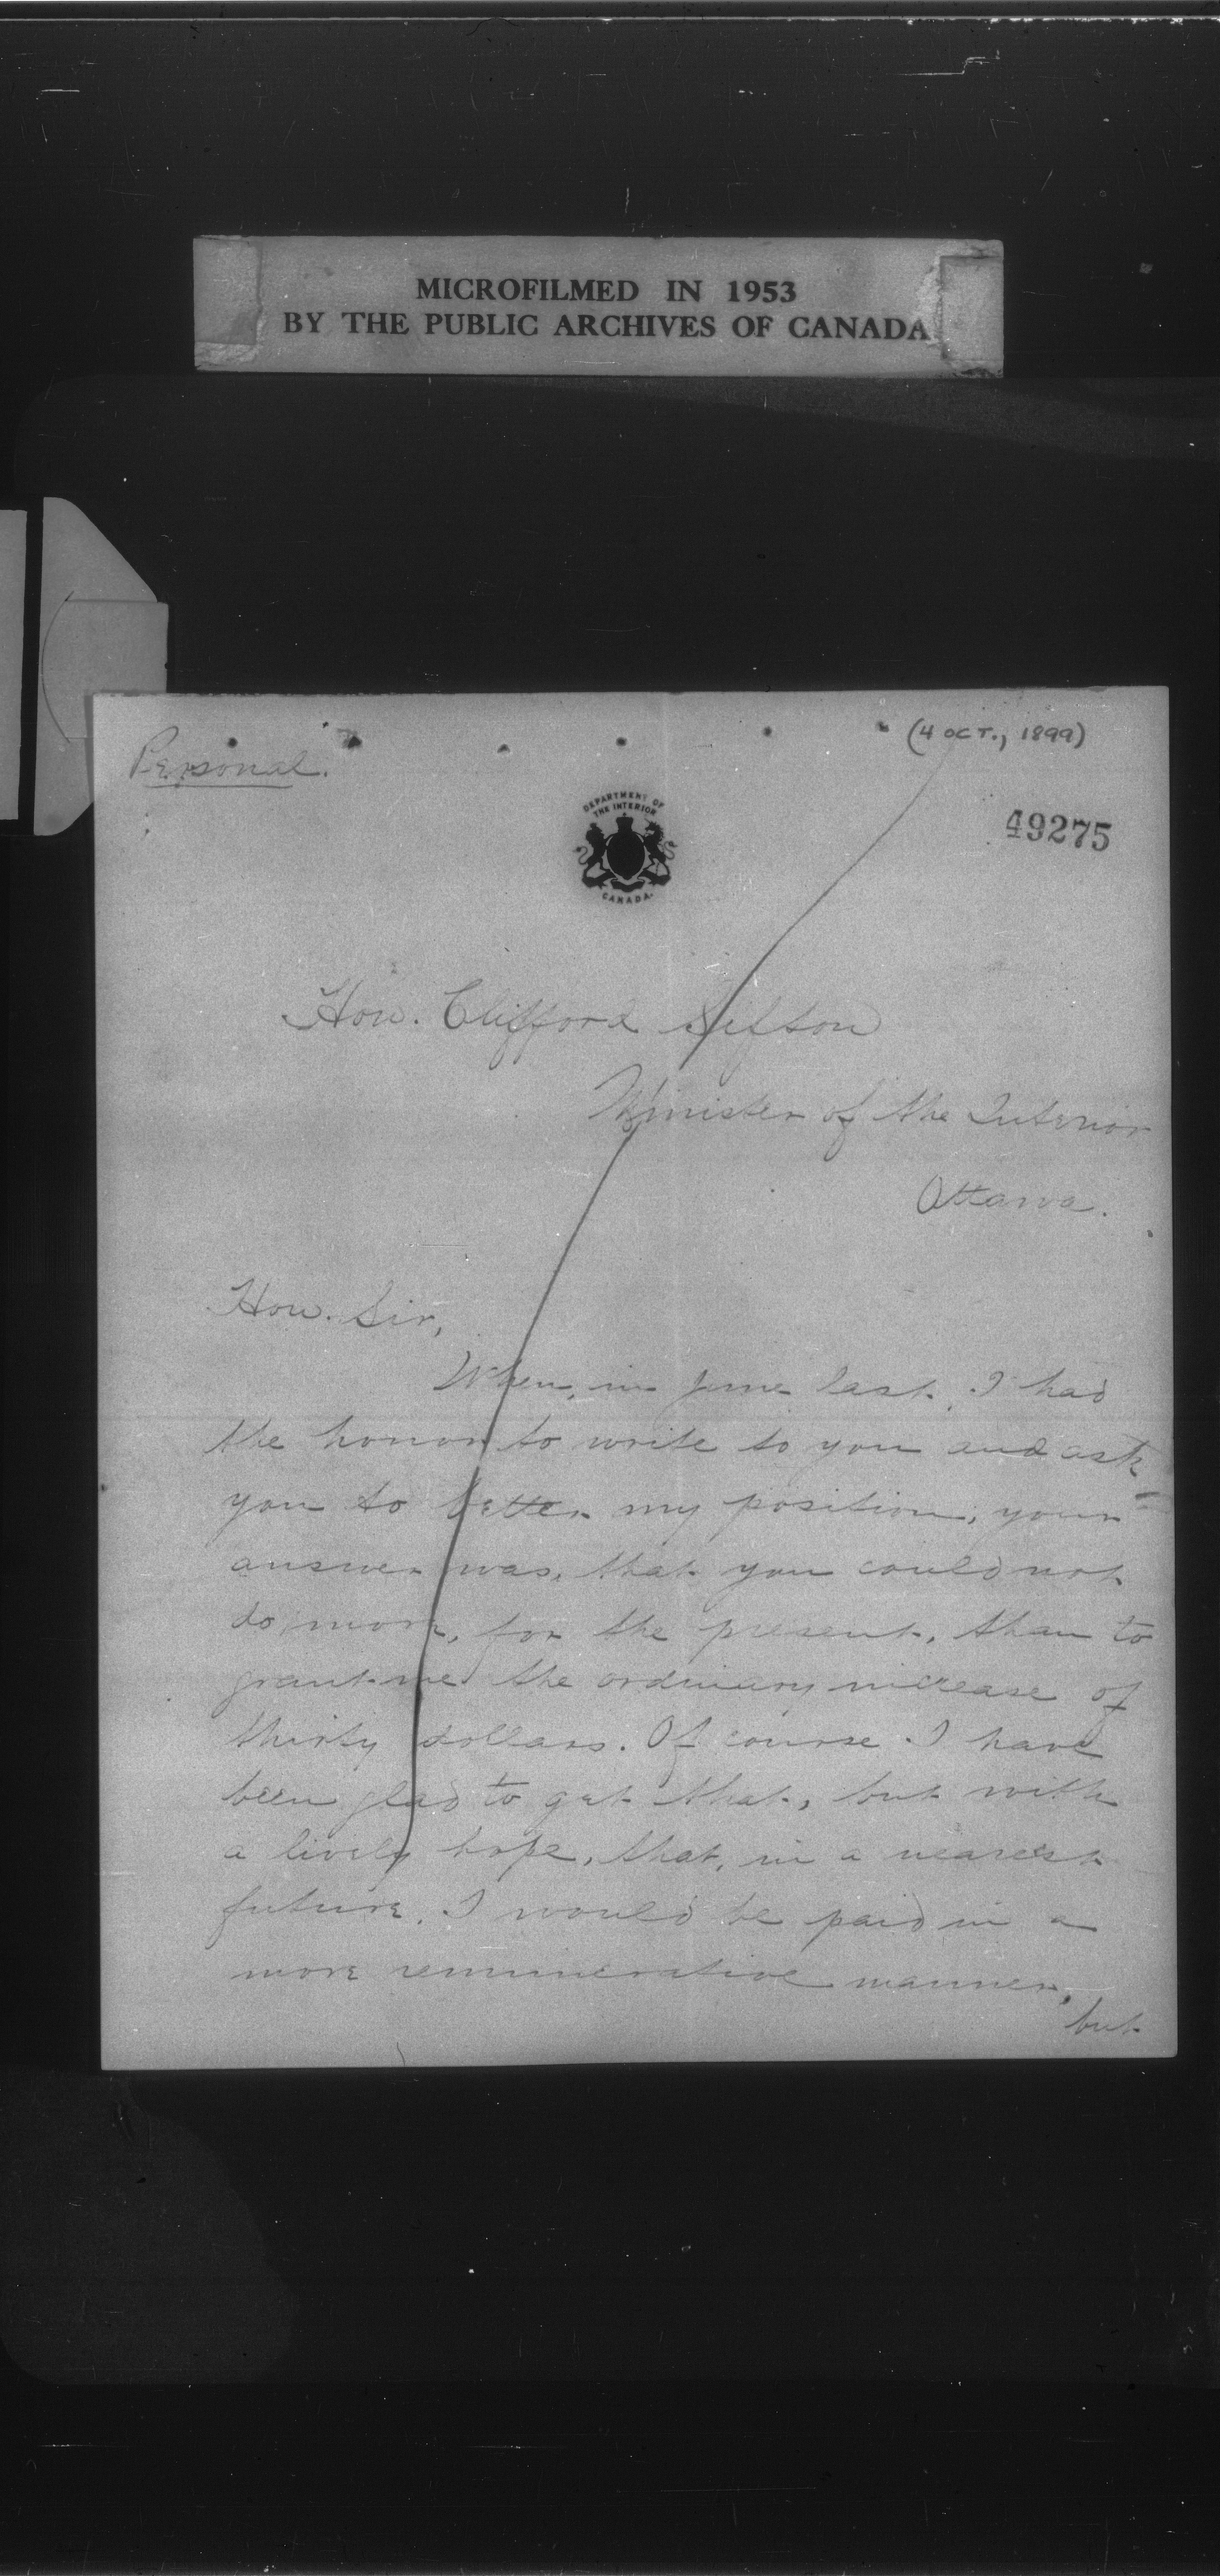 MICROFILMED IN 1953
BY THE PUBLIC ARCHIVES OF CANADA
(4 OCT., 1899)
Personal.
DEPARTMENT OF
THE INTERIOR
CANADA.
49275
Hon. Clifford Sifton
Minister of the Interior
Ottawa.
Hon. Sir,
When, in June last, I had
the honor to write to you and ask
you to better my position, your
answer was, that you could not
do more, for the present, than to
grant me the ordinary increase of
thirty dollars. Of course I have
been glad to get that, but with
a lively hope, that, in a nearest
future, I would be paid in a
more remunerative manner,
but